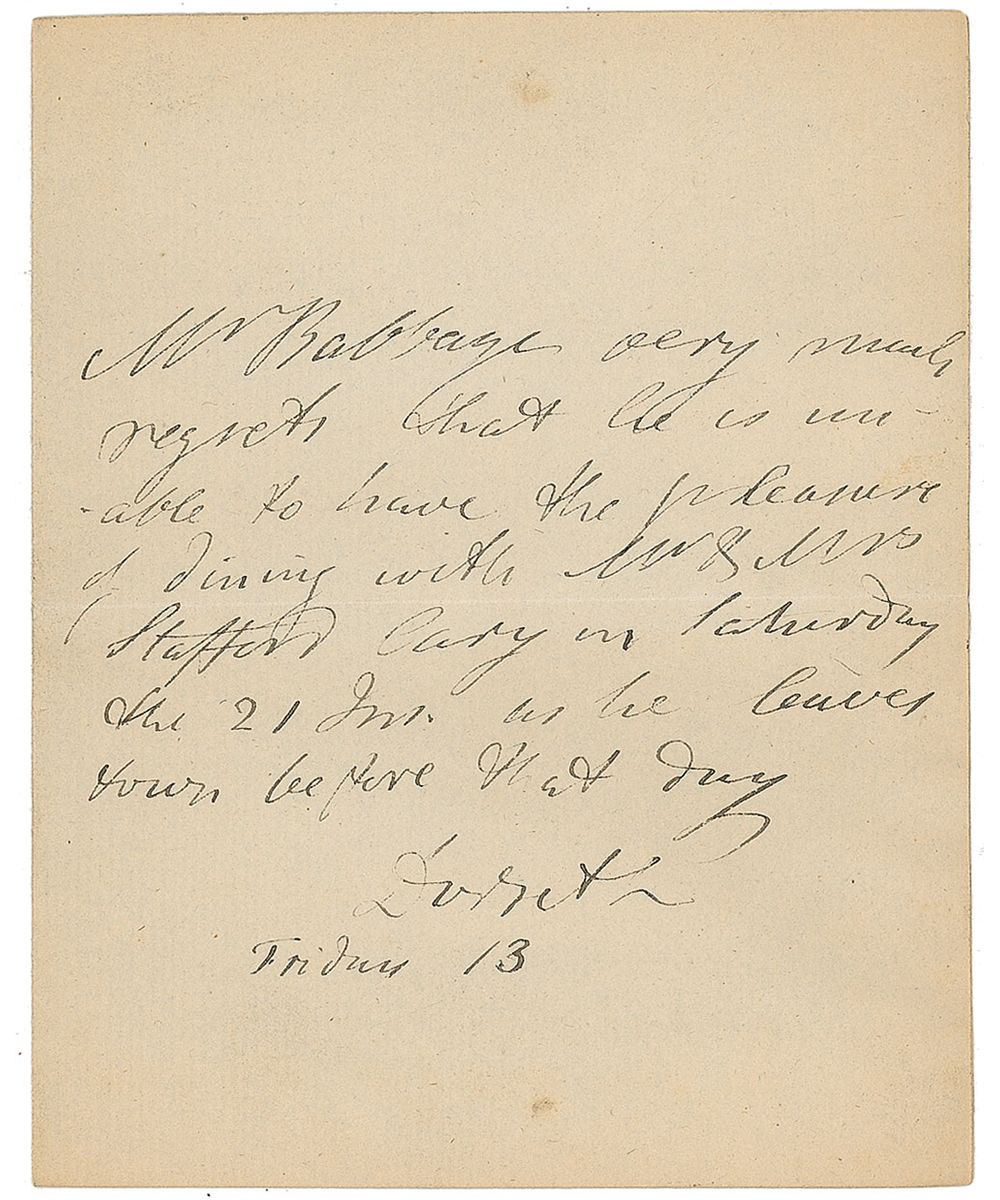 Mr Babbage very much
regrets that he is un-
-able to have the pleasure
of dining with Mr & Mrs
Stafford Cary on Saturday
the 21 Ins. as he leaves
town before that day
Dorset
Friday 13